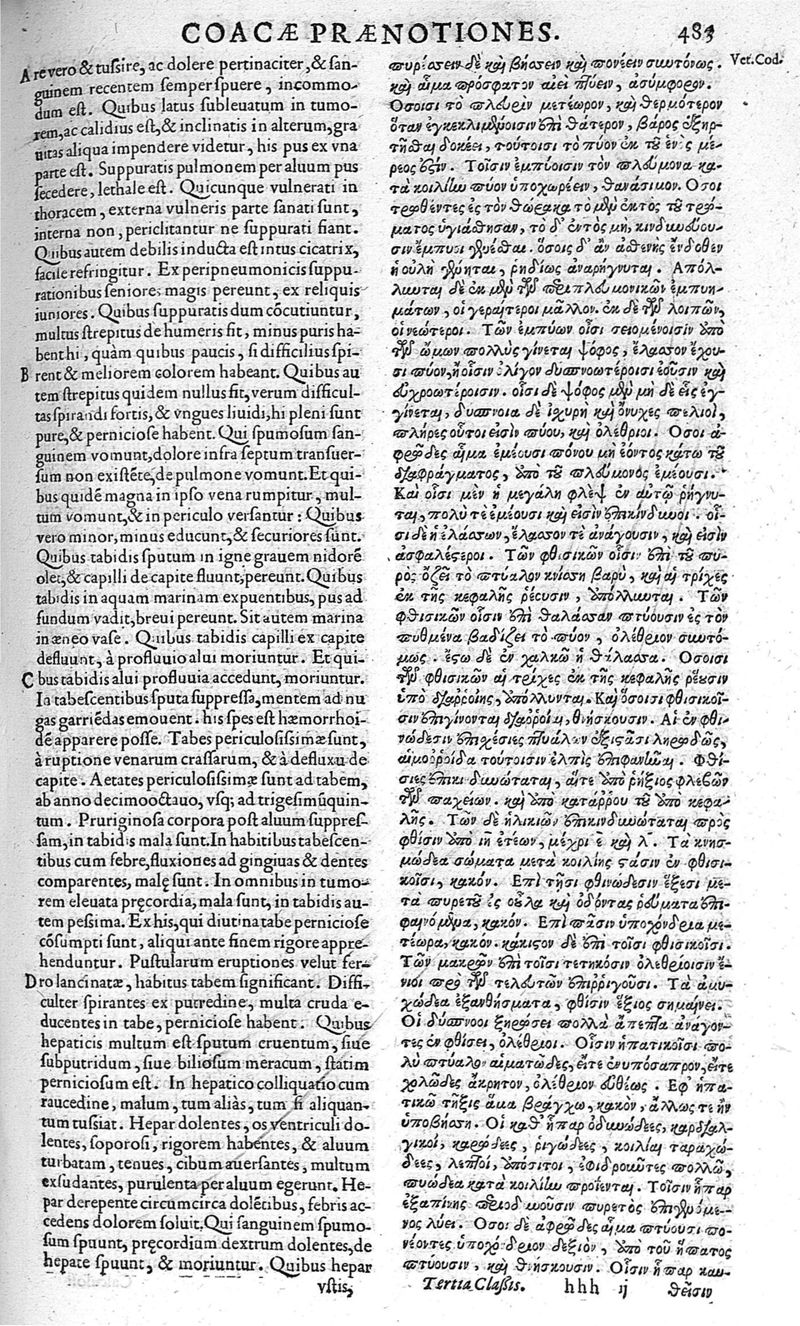 COACÆ PRÆNOTIONES. 483
A re vero & tussire, ac dolere pertinaciter, & san-
guinem recentem semper spuere, incommo-
dum est. Quibus latus subleuatum in tumo-
rem, ac calidius est, & inclinatis in alterum, gra
uitas aliqua impendere videtur, his pus ex vna
parte est. Suppuratis pulmonem per aluum pus
secedere, lethale est. Quicunque vulnerati in
thoracem, externa vulneris parte sanati sunt,
interna non, periclitantur ne suppurati fiant.
Quibus autem debilis inducta est intus cicatrix,
facile refringitur. Ex peripneumonicis suppu-
rationibus seniores magis pereunt, ex reliquis
iuniores. Quibus suppuratis dum cōcutiuntur,
multus strepitus de humeris fit, minus puris ha-
bent hi, quàm quibus paucis, si difficilius spi-
B rent & meliorem colorem habeant. Quibus au
tem strepitus quidem nullus fit, verum difficul-
tas spirandi fortis, & vngues liuidi, hi pleni sunt
pure, & perniciose habent. Qui spumosum san-
guinem vomunt, dolore infra septum transuer-
sum non existēte, de pulmone vomunt. Et qui-
bus quidē magna in ipso vena rumpitur, mul-
tum vomunt, & in periculo versantur: Quibus
vero minor, minus educunt, & securiores sunt.
Quibus tabidis sputum in igne grauem nidorē
olet, & capilli de capite fluunt, pereunt. Quibus
tabidis in aquam marinam expuentibus, pus ad
fundum vadit, breui pereunt. Sit autem marina
in æneo vase. Quibus tabidis capilli ex capite
defluunt, à profluuio alui moriuntur. Et qui-
C bus tabidis alui profluuia accedunt, moriuntur.
In tabescentibus sputa suppressa, mentem ad nu
gas garriēdas emouent: his spes est hæmorrhoi-
dē apparere posse. Tabes periculosissimæ sunt,
à ruptione venarum crassarum, & à defluxu de
capite. Aetates periculosissimæ sunt ad tabem,
ab anno decimooctauo, vsq; ad trigesimūquin-
tum. Pruriginosa corpora post aluum suppres-
sam, in tabidis mala sunt. In habitibus tabescen-
tibus cum febre, fluxiones ad gingiuas & dentes
comparentes, malę sunt. In omnibus in tumo-
rem eleuata pręcordia, mala sunt, in tabidis au-
tem pessima. Ex his, qui diutina tabe perniciose
cōsumpti sunt, aliqui ante finem rigore appre-
henduntur. Pustularum eruptiones velut fer-
D ro lancinatæ, habitus tabem significant. Diffi-
culter spirantes ex putredine, multa cruda e-
ducentes in tabe, perniciose habent. Quibus
hepaticis multum est sputum cruentum, siue
subputridum, siue biliosum meracum, statim
perniciosum est. In hepatico colliquatio cum
raucedine, malum, tum aliàs, tum si aliquan-
tum tussiat. Hepar dolentes, os ventriculi do-
lentes, soporosi, rigorem habentes, & aluum
turbatam, tenues, cibum auersantes, multum
exsudantes, purulenta per aluum egerunt. He-
par derepente circumcirca dolētibus, febris ac-
cedens dolorem soluit. Qui sanguinem spumo-
sum spuunt, pręcordium dextrum dolentes, de
hepate spuunt, & moriuntur. Quibus hepar
vstis,
πυρίασειν δὲ καὶ βήσσειν καὶ πονέειν συντόνως. Vet. Cod.
καὶ αἷμα πρόσφατον αἰεὶ πτύειν, ἀσύμφορον.
Ὅσοισι τὸ πλευρὸν μετέωρον, καὶ θερμότερον
ὅταν ἐγκεκλιμένοισιν ἐπὶ θάτερον, βάρος ἐξηρ-
τῆσθαι δοκέει, τούτοισι τὸ πύον ἐκ τοῦ ἑνὸς μέ-
ρεος ἐστίν. Τοῖσιν ἐμπύοισιν τὸν πλεύμονα κα-
τὰ κοιλίην πύον ὑποχωρέειν, θανάσιμον. Ὅσοι
τρωθέντες ἐς τὸν θώρακα τὸ μὲν ἐκτὸς τοῦ τρώ-
ματος ὑγιάσθησαν, τὸ δ' ἐντὸς μὴ, κινδυνεύου-
σιν ἔμπυοι γενέσθαι. ὅσοις δ' ἂν ἀσθενὴς ἔνδοθεν
ἡ οὐλὴ γένηται, ῥηϊδίως ἀναρήγνυται. Ἀπόλ-
λυνται δὲ ἐκ μὲν τῶν περιπλευμονικῶν ἐμπυη-
μάτων, οἱ γεραίτεροι μᾶλλον. ἐκ δὲ τῶν λοιπῶν,
οἱ νεώτεροι. Τῶν ἐμπύων οἷσι σειομένοισιν ἀπὸ
τῶν ὤμων πολλὺς γίνεται ψόφος, ἔλασσον ἔχου-
σι πύον, ἢ οἷσιν ὀλίγον δυσπνοωτέροισι ἐοῦσιν καὶ
εὐχροωτέροισιν. οἷσι δὲ ψόφος μὲν μὴ δὲ εἷς ἐγ-
γίνεται, δύσπνοια δὲ ἰσχυρὴ καὶ ὄνυχες πελιοὶ,
πλήρεις οὗτοι εἰσὶν πύου, καὶ ὀλέθριοι. Ὅσοι ἀ-
φρῶδες αἷμα ἐμέουσι πόνου μὴ ἐόντος κάτω τοῦ
διαφράγματος, ἀπὸ τοῦ πλεύμονος ἐμέουσι.
Καὶ οἷσι μὲν ἡ μεγάλη φλὲψ ἐν αὐτῷ ῥήγνυ-
ται, πολύ τε ἐμέουσι καὶ εἰσὶν ἐπικίνδυνοι. οἷ-
σι δὲ ἡ ἐλάσσων, ἔλασσόν τε ἀνάγουσιν, καὶ εἰσὶν
ἀσφαλέστεροι. Τῶν φθισικῶν οἷσιν ἐπὶ τοῦ πυ-
ρὸς ὄζει τὸ πτύαλον κνίσσης βαρὺ, καὶ αἱ τρίχες
ἐκ τῆς κεφαλῆς ῥέουσιν, ἀπόλλυνται. Τῶν
φθισικῶν οἷσιν ἐπὶ θάλασσαν πτύουσιν ἐς τὸν
πυθμένα βαδίζει τὸ πύον, ὀλέθριον συντό-
μως. ἔστω δὲ ἐν χαλκῷ ἡ θάλασσα. Ὅσοισι
τῶν φθισικῶν αἱ τρίχες ἐκ τῆς κεφαλῆς ῥέουσιν
ὑπὸ διαρροίης, ἀπόλλυνται. Καὶ ὅσοισι φθισικοῖ-
σιν ἐπιγίνονται διάρροιαι, θνήσκουσιν. Αἱ ἐν φθι-
νώδεσιν ἐπισχέσιες πτυάλων ἐξιστᾶσι ληρωδῶς,
αἱμορροΐδα τούτοισιν ἐλπὶς ἐπιφανῆναι. Φθί-
σιες ἐπικινδυνόταται, αἵτε ἀπὸ ῥήξιος φλεβῶν
τῶν παχείων. καὶ ἀπὸ κατάρρου τοῦ ἀπὸ κεφα-
λῆς. Τῶν δὲ ἡλικιῶν ἐπικινδυνόταται πρὸς
φθίσιν ἀπὸ ιη ἐτέων, μέχρι ε καὶ λ. Τὰ κνησ-
μώδεα σώματα μετὰ κοιλίης στάσιν ἐν φθισι-
κοῖσι, κακόν. Ἐπὶ τῇσι φθινώδεσιν ἕξεσι με-
τὰ πυρετοῦ ἐς οὖλα καὶ ὀδόντας ῥεύματα ἐπι-
φαινόμενα, κακόν. Ἐπὶ πᾶσιν ὑποχόνδρια με-
τέωρα, κακόν. κάκιστον δὲ ἐπὶ τοῖσι φθισικοῖσι.
Τῶν μακρῶν ἐπὶ τοῖσι τετηκόσιν ὀλεθρίοισιν ἔ-
νιοι πρὸ τῶν τελευτῶν ἐπιρριγοῦσι. Τὰ ἀμυ-
χώδεα ἐξανθήσματα, φθίσιν ἕξιος σημαίνει.
Οἱ δύσπνοοι ξηρώσει πολλὰ ἄπεπτα ἀνάγον-
τες ἐν φθίσει, ὀλέθριοι. Οἷσιν ἡπατικοῖσι πο-
λὺ πτύαλον αἱματῶδες, εἴτε ἐν ὑπόσαπρον, εἴτε
χολῶδες ἄκρητον, ὀλέθριον εὐθέως. Ἐφ' ἡπα-
τικῷ τῆξις ἅμα βράγχῳ, κακὸν, ἄλλως τε ἢν
ὑποβήσσῃ. Οἱ καθ' ἧπαρ ὀδυνώδεες, καρδιαλ-
γικοὶ, καρώδεες, ῥιγώδεες, κοιλίαι ταραχώ-
δεες, λεπτοὶ, ἀπόσιτοι, ἐφιδροῦντες πολλῷ,
πυώδεα κατὰ κοιλίην προΐενται. Τοῖσιν ἧπαρ
ἐξαπίνης περιοδυνῶσιν πυρετὸς ἐπιγενόμε-
νος λύει. Ὅσοι δὲ ἀφρῶδες αἷμα πτύουσι πο-
νέοντες ὑποχόνδριον δεξιὸν, ἀπὸ τοῦ ἥπατος
πτύουσιν, καὶ θνήσκουσιν. Οἷσιν ἧπαρ καυ-
Tertia Classis. hhh ij θεῖσιν